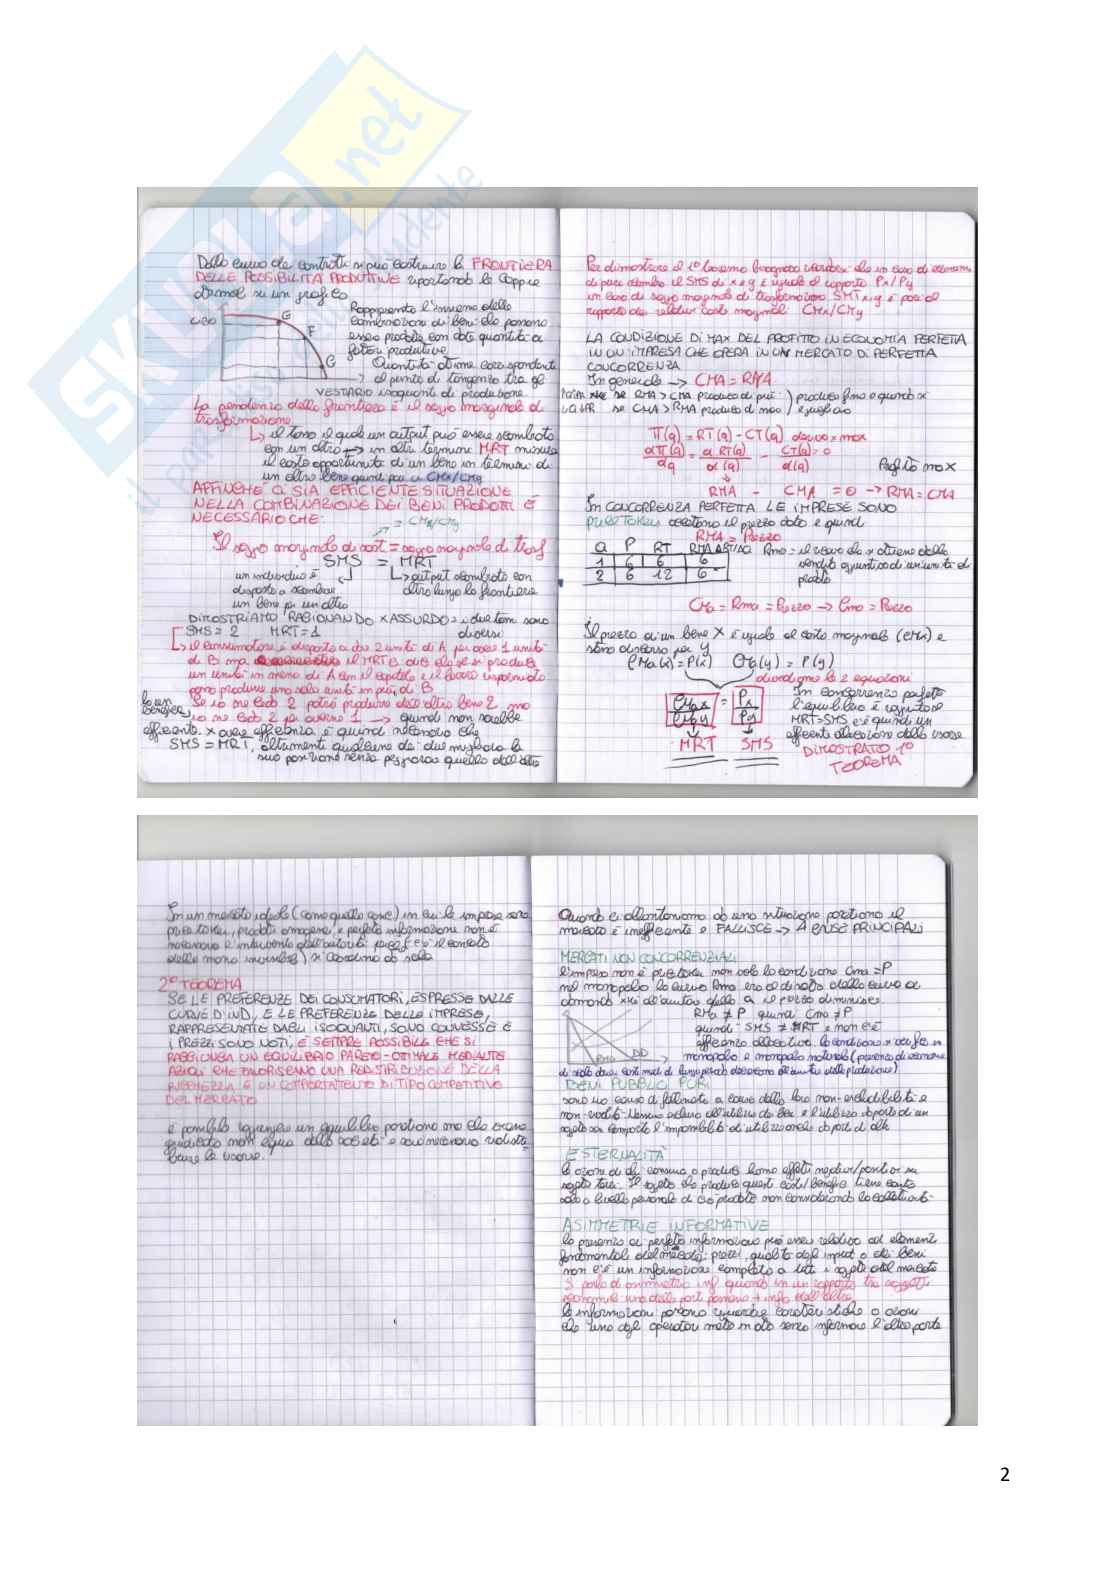 Dalla curva dei contratti si può costruire la FRONTIERA
DELLE POSSIBILITÀ PRODUTTIVE riportando le coppie
su un grafico
CIBO
G
F
G
VESTIARIO
Rappresenta l'insieme delle
combinazioni di beni che possono
essere prodotti con date quantità di
fattori produttivi.
Quantità ottime corrispondenti
al punto di tangenza tra gli
isoquanti di produzione
La pendenza della frontiera è il saggio marginale di
trasformazione
il tasso il quale un output può essere scambiato
con un altro → in altri termini MRT misura
il costo opportunità di un bene in termini di
un altro bene quindi pari a CMx/CMy
AFFINCHÈ CI SIA EFFICIENTE SITUAZIONE
NELLA COMBINAZIONE DEI BENI PRODOTTI È
NECESSARIO CHE:
= CMx/CMy
Il saggio marginale di sost = saggio marginale di trasf
SMS = MRT
un individuo è
disposto a scambiare
un bene per un altro
output scambiato con
altro lungo la frontiera
DIMOSTRIAMO RAGIONANDO x ASSURDO = i due termini sono
diversi
SMS = 2 MRT = 1
il consumatore è disposto a dare 2 unità di A per avere 1 unità
di B ma il MRT ci dice che se si produce
un unità in meno di A con il capitale e il lavoro risparmiato
posso produrre una sola unità in più di B
Se io ne cedo 2 potrò produrre dell'altro bene 2 ma
io ne cedo 2 per averne 1 → quindi non sarebbe
efficiente x avere efficienza è quindi necessario che
SMS = MRT, altrimenti qualcuno dei due migliora la
sua posizione senza peggiorare quella dell'altro
Per dimostrare il 1° teorema bisogna ricordarsi che in caso di
di puro scambio il SMS di x e y è uguale al rapporto Px/Py
in caso di saggio marginale di trasformazione SMT x,y è pari al
rapporto dei relativi costi marginali CMx/CMy
LA CONDIZIONE DI MAX DEL PROFITTO IN ECONOMIA PERFETTA
IN UN'IMPRESA CHE OPERA IN UN MERCATO DI PERFETTA
CONCORRENZA
In generale → CMA = RMA
se RMA > CMA produco di più
se CMA > RMA produco di meno
produco fino a quando si
eguagliano
Π(q) = RT(q) - CT(q) derivo x max
dΠ(q)/dq = dRT(q)/d(q) - CT(q)/d(q) = 0
Profitto max
RMA - CMA = 0 → RMA = CMA
IN CONCORRENZA PERFETTA LE IMPRESE SONO
PRICE TAKER accettano il prezzo dato e quindi
RMA = Prezzo
Q P RT RMA
1 6 6 6
2 6 12 6
Rma = il ricavo che si ottiene dalla
vendita aggiuntiva di un'unità di
prodotto
CMa = Rma = Prezzo → Cma = Prezzo
Il prezzo di un bene X è uguale al costo marginale (CMx) e
stesso discorso per y
CMa(x) = P(x) CMa(y) = P(y)
dividiamo le 2 equazioni
CMax/CMay = Px/Py
MRT SMS
In concorrenza perfetta
l'equilibrio è raggiunto se
MRT=SMS e c'è quindi un
efficiente allocazione delle risorse
DIMOSTRATO 1°
TEOREMA
In un mercato ideale (come quello conc) in cui le imprese sono
price taker, prodotti omogenei, e perfetta informazione non è
necessario l'intervento dell'autorità
della mano invisibile) si coordina da sola
2° TEOREMA
SE LE PREFERENZE DEI CONSUMATORI, ESPRESSE DALLE
CURVE D'IND, E LE PREFERENZE DELLE IMPRESE,
RAPPRESENTATE DAGLI ISOQUANTI, SONO CONVESSE E
I PREZZI SONO NOTI, È SEMPRE POSSIBILE CHE SI
RAGGIUNGA UN EQUILIBRIO PARETO-OTTIMALE MEDIANTE
AZIONI CHE FAVORISCANO UNA REDISTRIBUZIONE DELLA
RICCHEZZA E UN COMPORTAMENTO DI TIPO COMPETITIVO
DEL MERCATO
è possibile raggiungere un equilibrio paretiano ma che era
giudicato non equo dalla società e così
le risorse.
Quando ci allontaniamo da una situazione paretiana il
mercato è inefficiente e FALLISCE → 4 CAUSE PRINCIPALI
MERCATI NON CONCORRENZIALI
l'impresa non è price taker non vale la condizione Cma = P
nel monopolio la curva Rma era al di sotto della curva di
domanda xkè all'aumentare della Q il prezzo diminuisce.
RMA
DD
RMa ≠ P quindi Cma ≠ P
quindi SMS ≠ MRT e non c'è
efficienza allocativa.
monopolio e monopolio naturale (presenza di economie
di scala dove costi medi di lungo periodo decrescono all'aumentare della produzione)
BENI PUBBLICI PURI
sono una causa di fallimento a causa della loro non-escludibilità e
non-rivalità. Nessuno escluso all'utilizzo dei beni e l'utilizzo da parte di un
sogg non comporta l'impossibilità di utilizzazione da parte di altri
ESTERNALITÀ
le azioni di chi consuma o produce hanno effetti negativi/positivi su
sogg terzi. Il sogg che produce questi costi/benefici tiene conto
solo a livello personale di ciò prodotto non considerando la collettività
ASIMMETRIE INFORMATIVE
la presenza di perfetta informazione può essere relativa ad elementi
fondamentali del mercato: prezzi, qualità degli input o dei beni
non c'è un informazione completa a tutti i soggetti del mercato
Si parla di asimmetria inf quando in un rapporto tra soggetti
economici una delle parti possiede + info dell'altra
le informazioni possono riguardare caratteristiche o azioni
che uno degli operatori mette in atto senza informare l'altra parte
SKUOLA.net
il paradiso dello studente
2